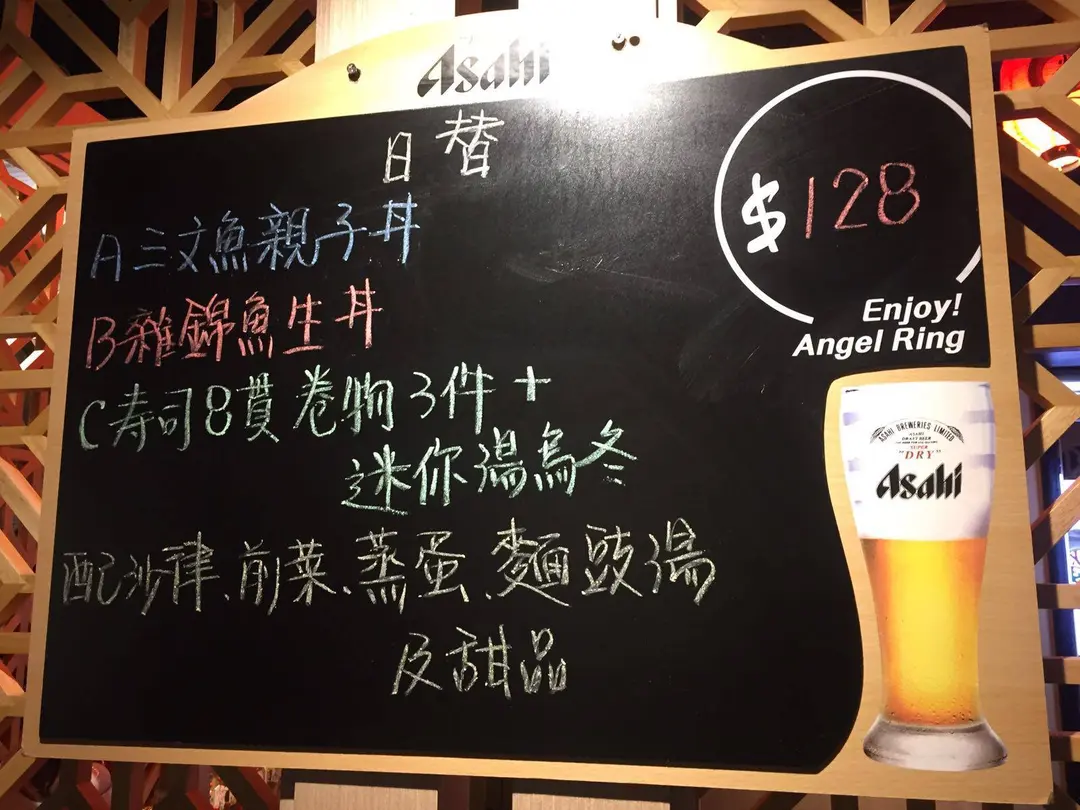 Asahi
日替
$128
A三文魚親子丼
B雜錦魚生丼
C寿司8貫卷物3件+
迷你湯烏冬
配沙律、前菜、蒸蛋、麵豉湯
及甜品
Enjoy!
Angel Ring
ASAHI BREWERIES LIMITED
ASAHI
DRAFT BEER
SUPER
"DRY"
Asahi